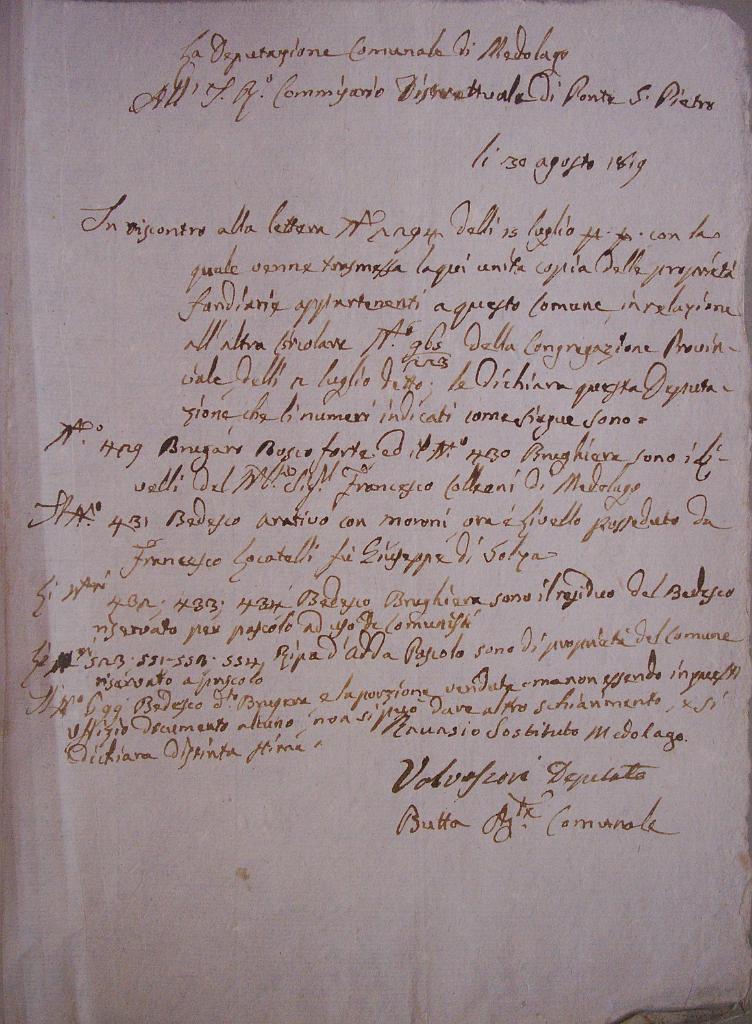 La Deputazione Comunale di Medolago
All' I. R.º Commissario Distrettuale di Ponte S. Pietro
li 30 agosto 1819
In riscontro alla lettera Nº 1294 delli 15 luglio p. p. con la
quale venne trasmessa la qui unita copia delle proprietà
fondiarie appartenenti a questo Comune in relazione
all'altra Circolare Nº 965/223 della Congregazione Provin-
ciale delli 2 luglio detto; le dichiara questa Deputa-
zione che li numeri indicati come siegue sono =
Nº 429 Brugaro Bosco forte ed il Nº 430 Brughiera sono i li-
velli del Sigr Francesco Colleoni di Medolago
Il Nº 431 Bedesco arativo con moroni, ora è livello posseduto da
Francesco Locatelli fù Giuseppe di Solza
Li Nri 432; 433; 434 Bedesco Brughiera sono il residuo del Bedesco
riservato per pascolo ad uso de Comunisti
Li Nri 523. 551-552. 554 Ripa d'Adda Pascolo sono di proprietà del Comune
riservato a pascolo
Il Nº 699 Bedesco dto Brugera e la porzione venduta ma non essendo in questo
uffizio documento alcuno, non si può dare altro schiarimento, e si
dichiara distinta stima
Sostituto Medolago
Deputato
Butta Agte Comunale